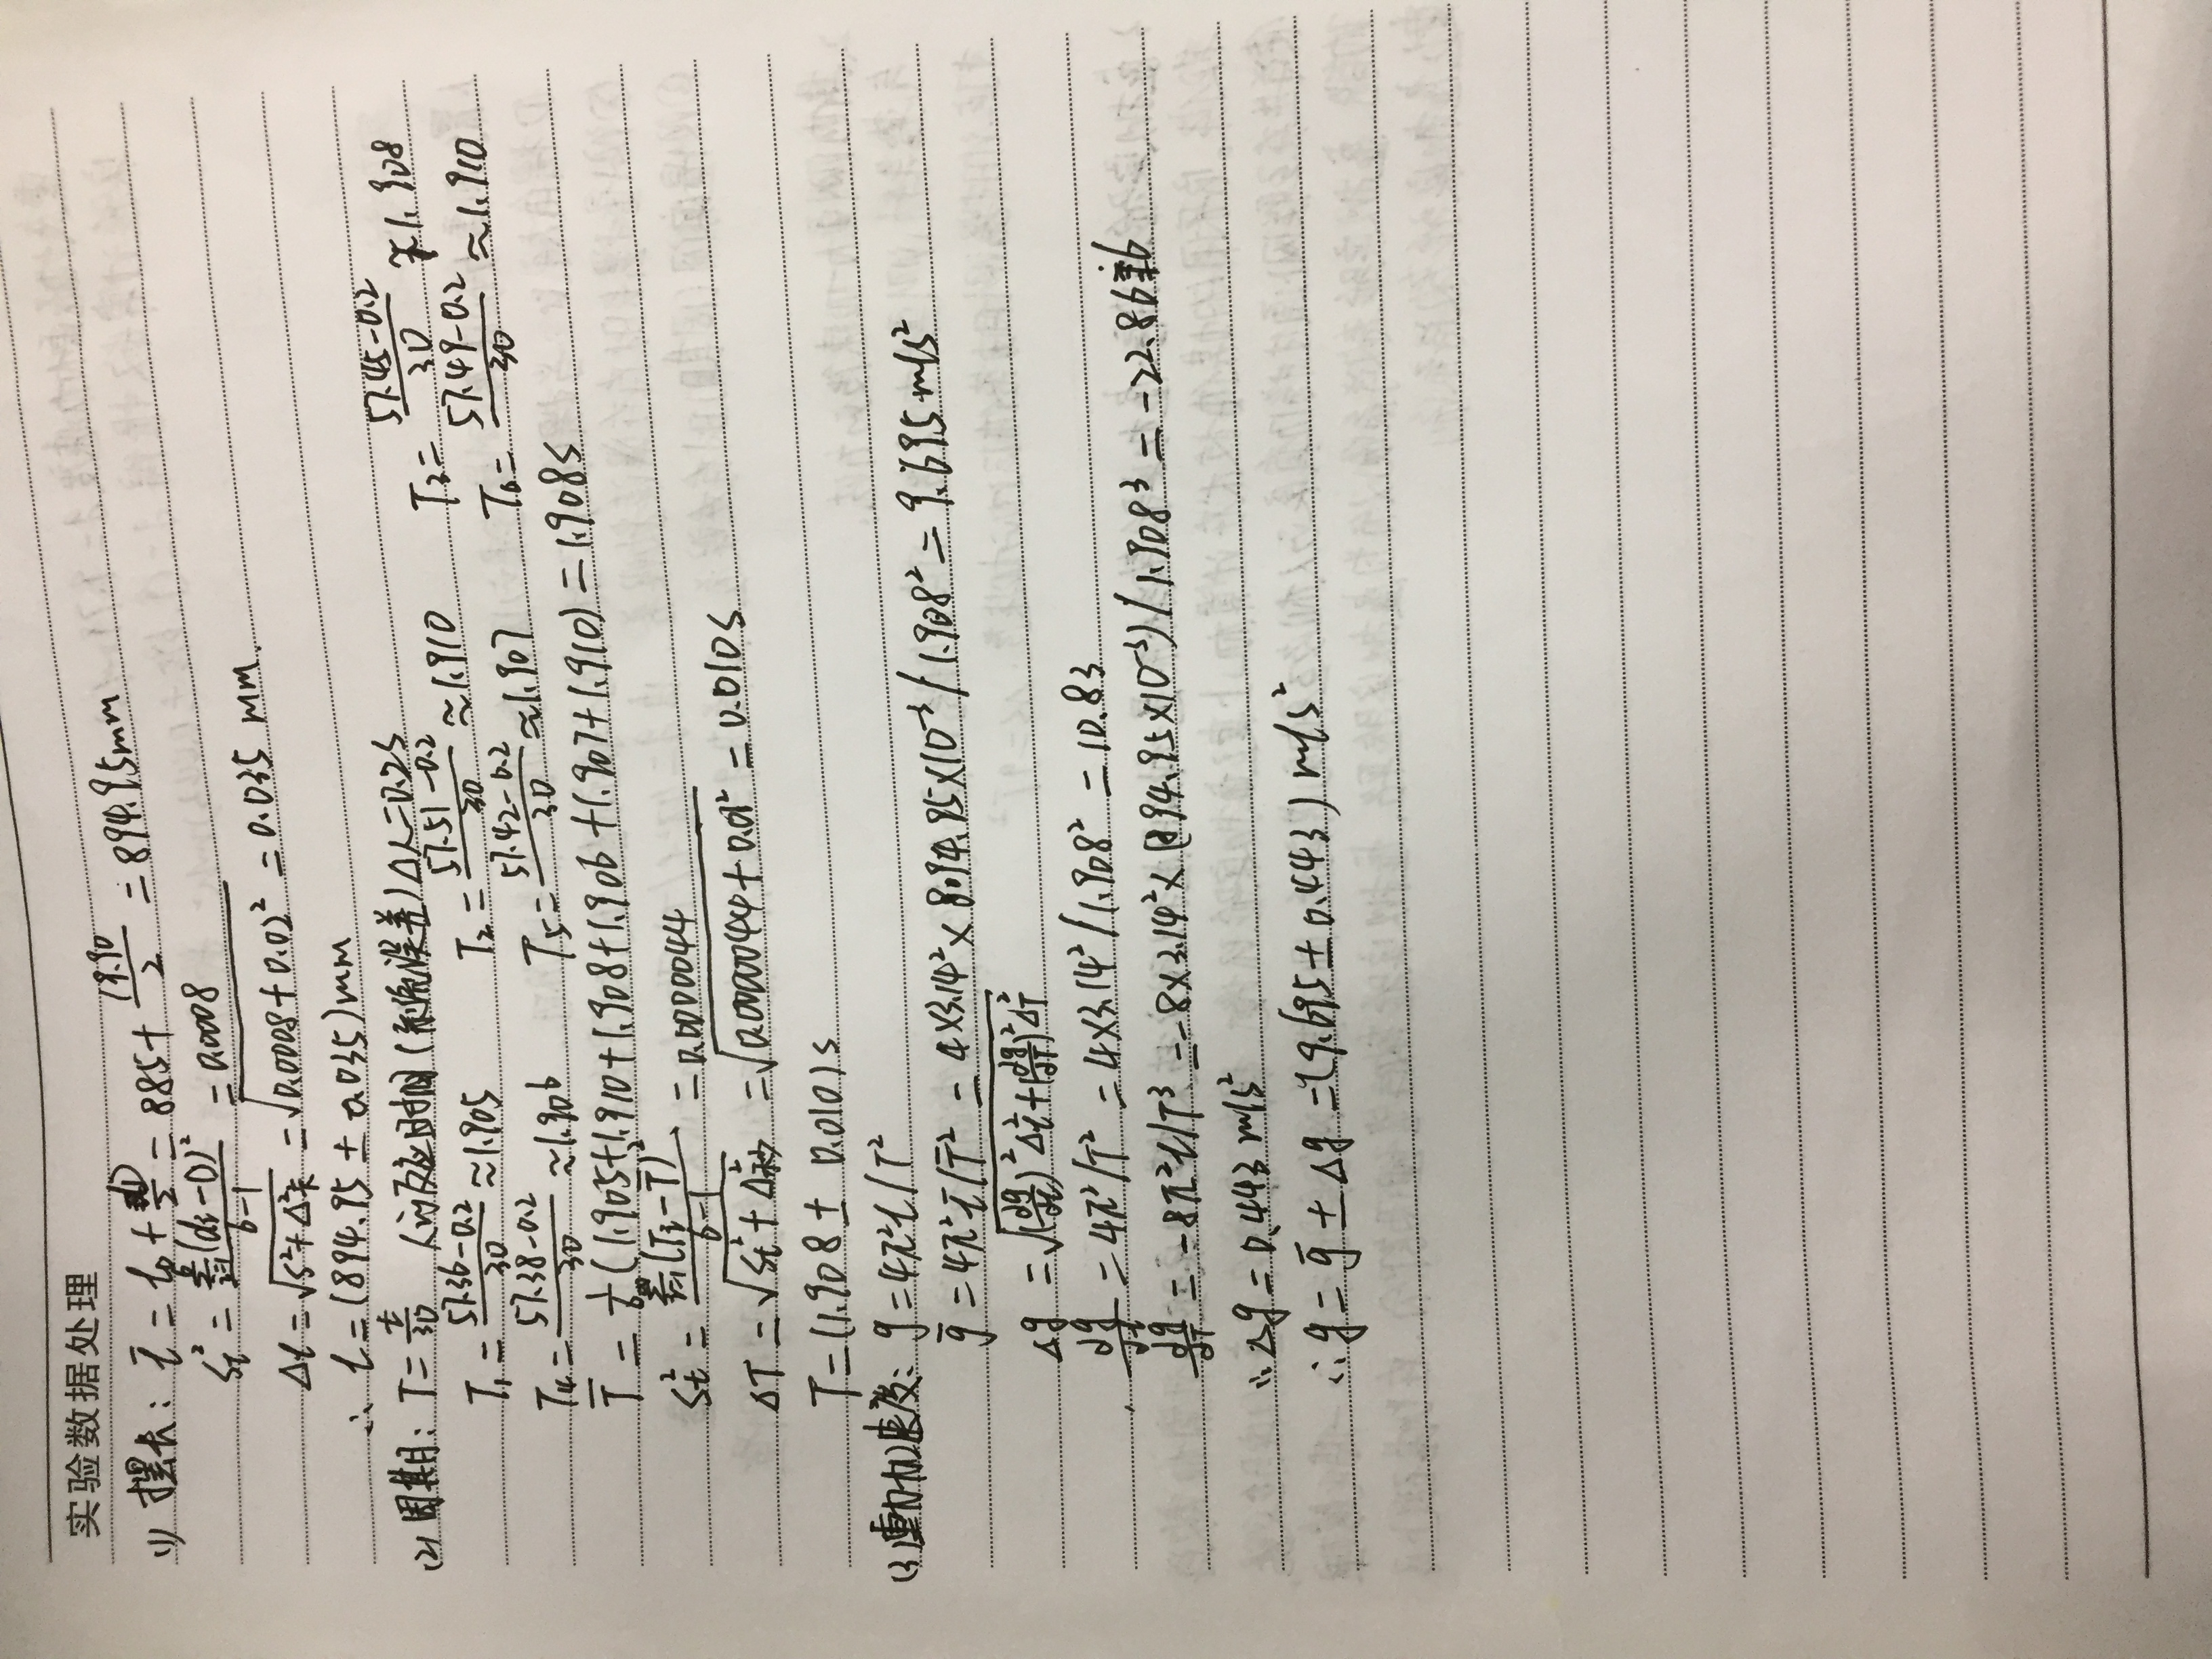 实验数据处理
(1) 摆长: l̄ = l₀ + D/2 = 885 + 19.90/2 = 894.95mm
Sₗ² = Σᵢ₌₁⁶(dᵢ-D)²/(6-1) = 0.0008
Δl = √(S²+Δ²卡) = √(0.0008+0.02²) = 0.035 mm.
∴ l = (894.95 ± 0.035)mm
(2) 周期: T = t/30 人的反应时间(系统误差)Δ人=0.2s
T₁ = (57.36-0.2)/30 ≈1.905 T₂ = (57.51-0.2)/30 ≈1.910 T₃ = (57.45-0.2)/30 ≈1.908
T₄ = (57.38-0.2)/30 ≈1.906 T₅ = (57.42-0.2)/30 ≈1.907 T₆ = (57.49-0.2)/30 ≈1.910
T̄ = 1/6 (1.905+1.910+1.908+1.906+1.907+1.910) = 1.908s
Sₜ² = Σᵢ₌₁(Tᵢ-T̄)²/(6-1) = 0.0000044
ΔT = √(Sₜ²+Δ²秒) = √(0.0000044+0.01²) = 0.010s
T = (1.908 ± 0.010)s
(3)重力加速度: g = 4π²l/T²
ḡ = 4π²l̄/T̄² = 4×3.14²×894.95×10⁻³/1.908² = 9.695 m/s²
Δg = √((∂g/∂l)²Δl²+(∂g/∂T)²ΔT²)
∂g/∂l = 4π²/T² = 4×3.14²/1.908² = 10.83
∂g/∂T = -8π²l/T³ = -8×3.14²×(894.95×10⁻³)/1.908³ = -22.86
∴ Δg = 0.443 m/s²
∴ g = ḡ ± Δg = (9.695 ± 0.443) m/s²